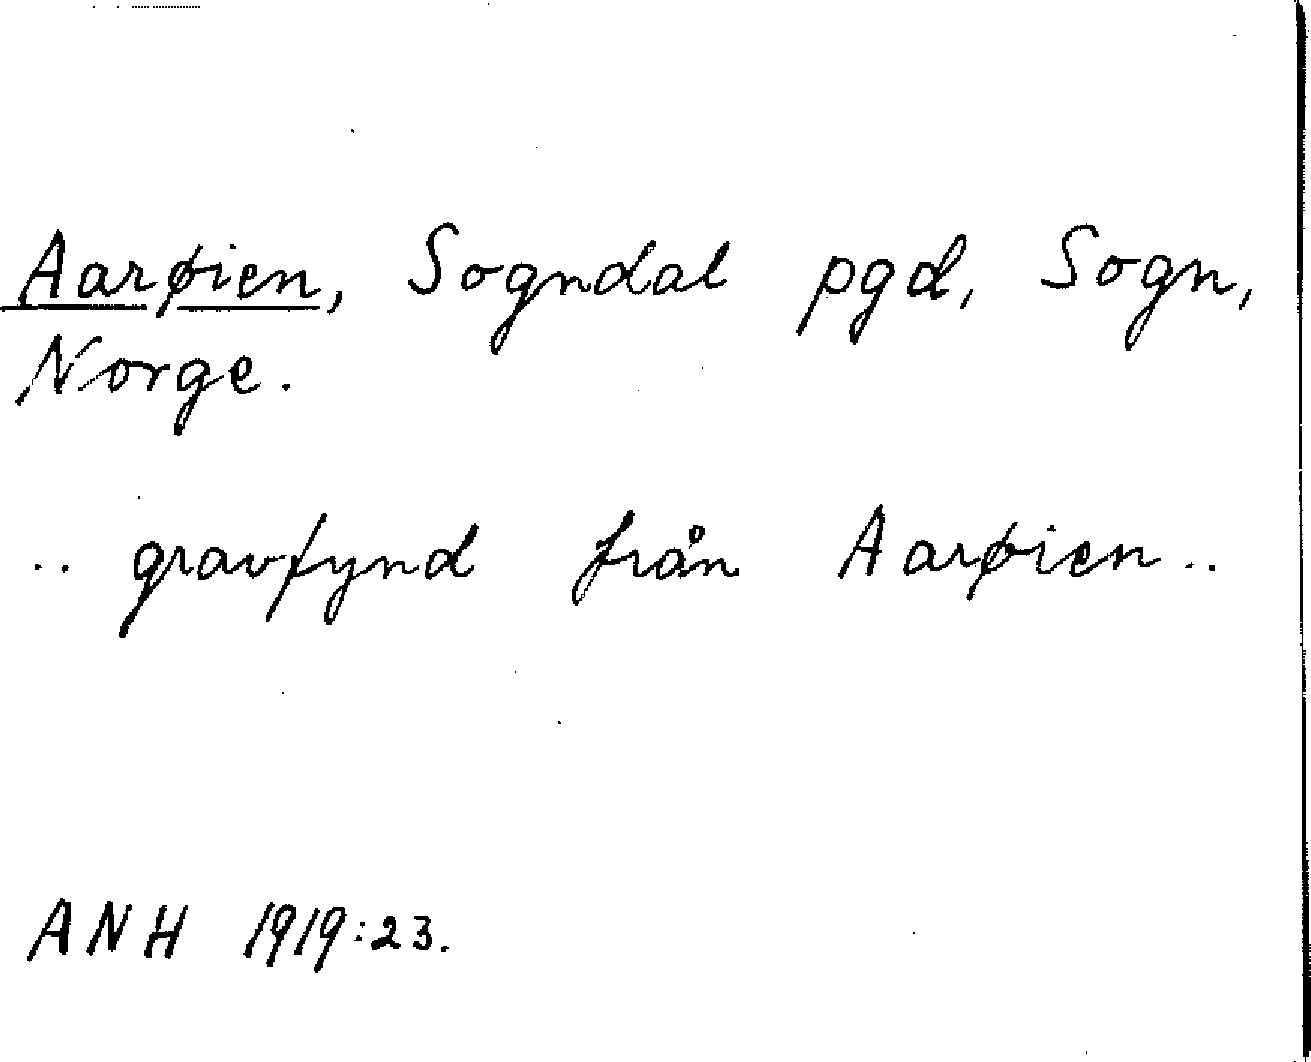 Aarøien, Sogndal pgd, Sogn,
Norge.
.. gravfynd från Aarøien ..
ANH 1919:23.